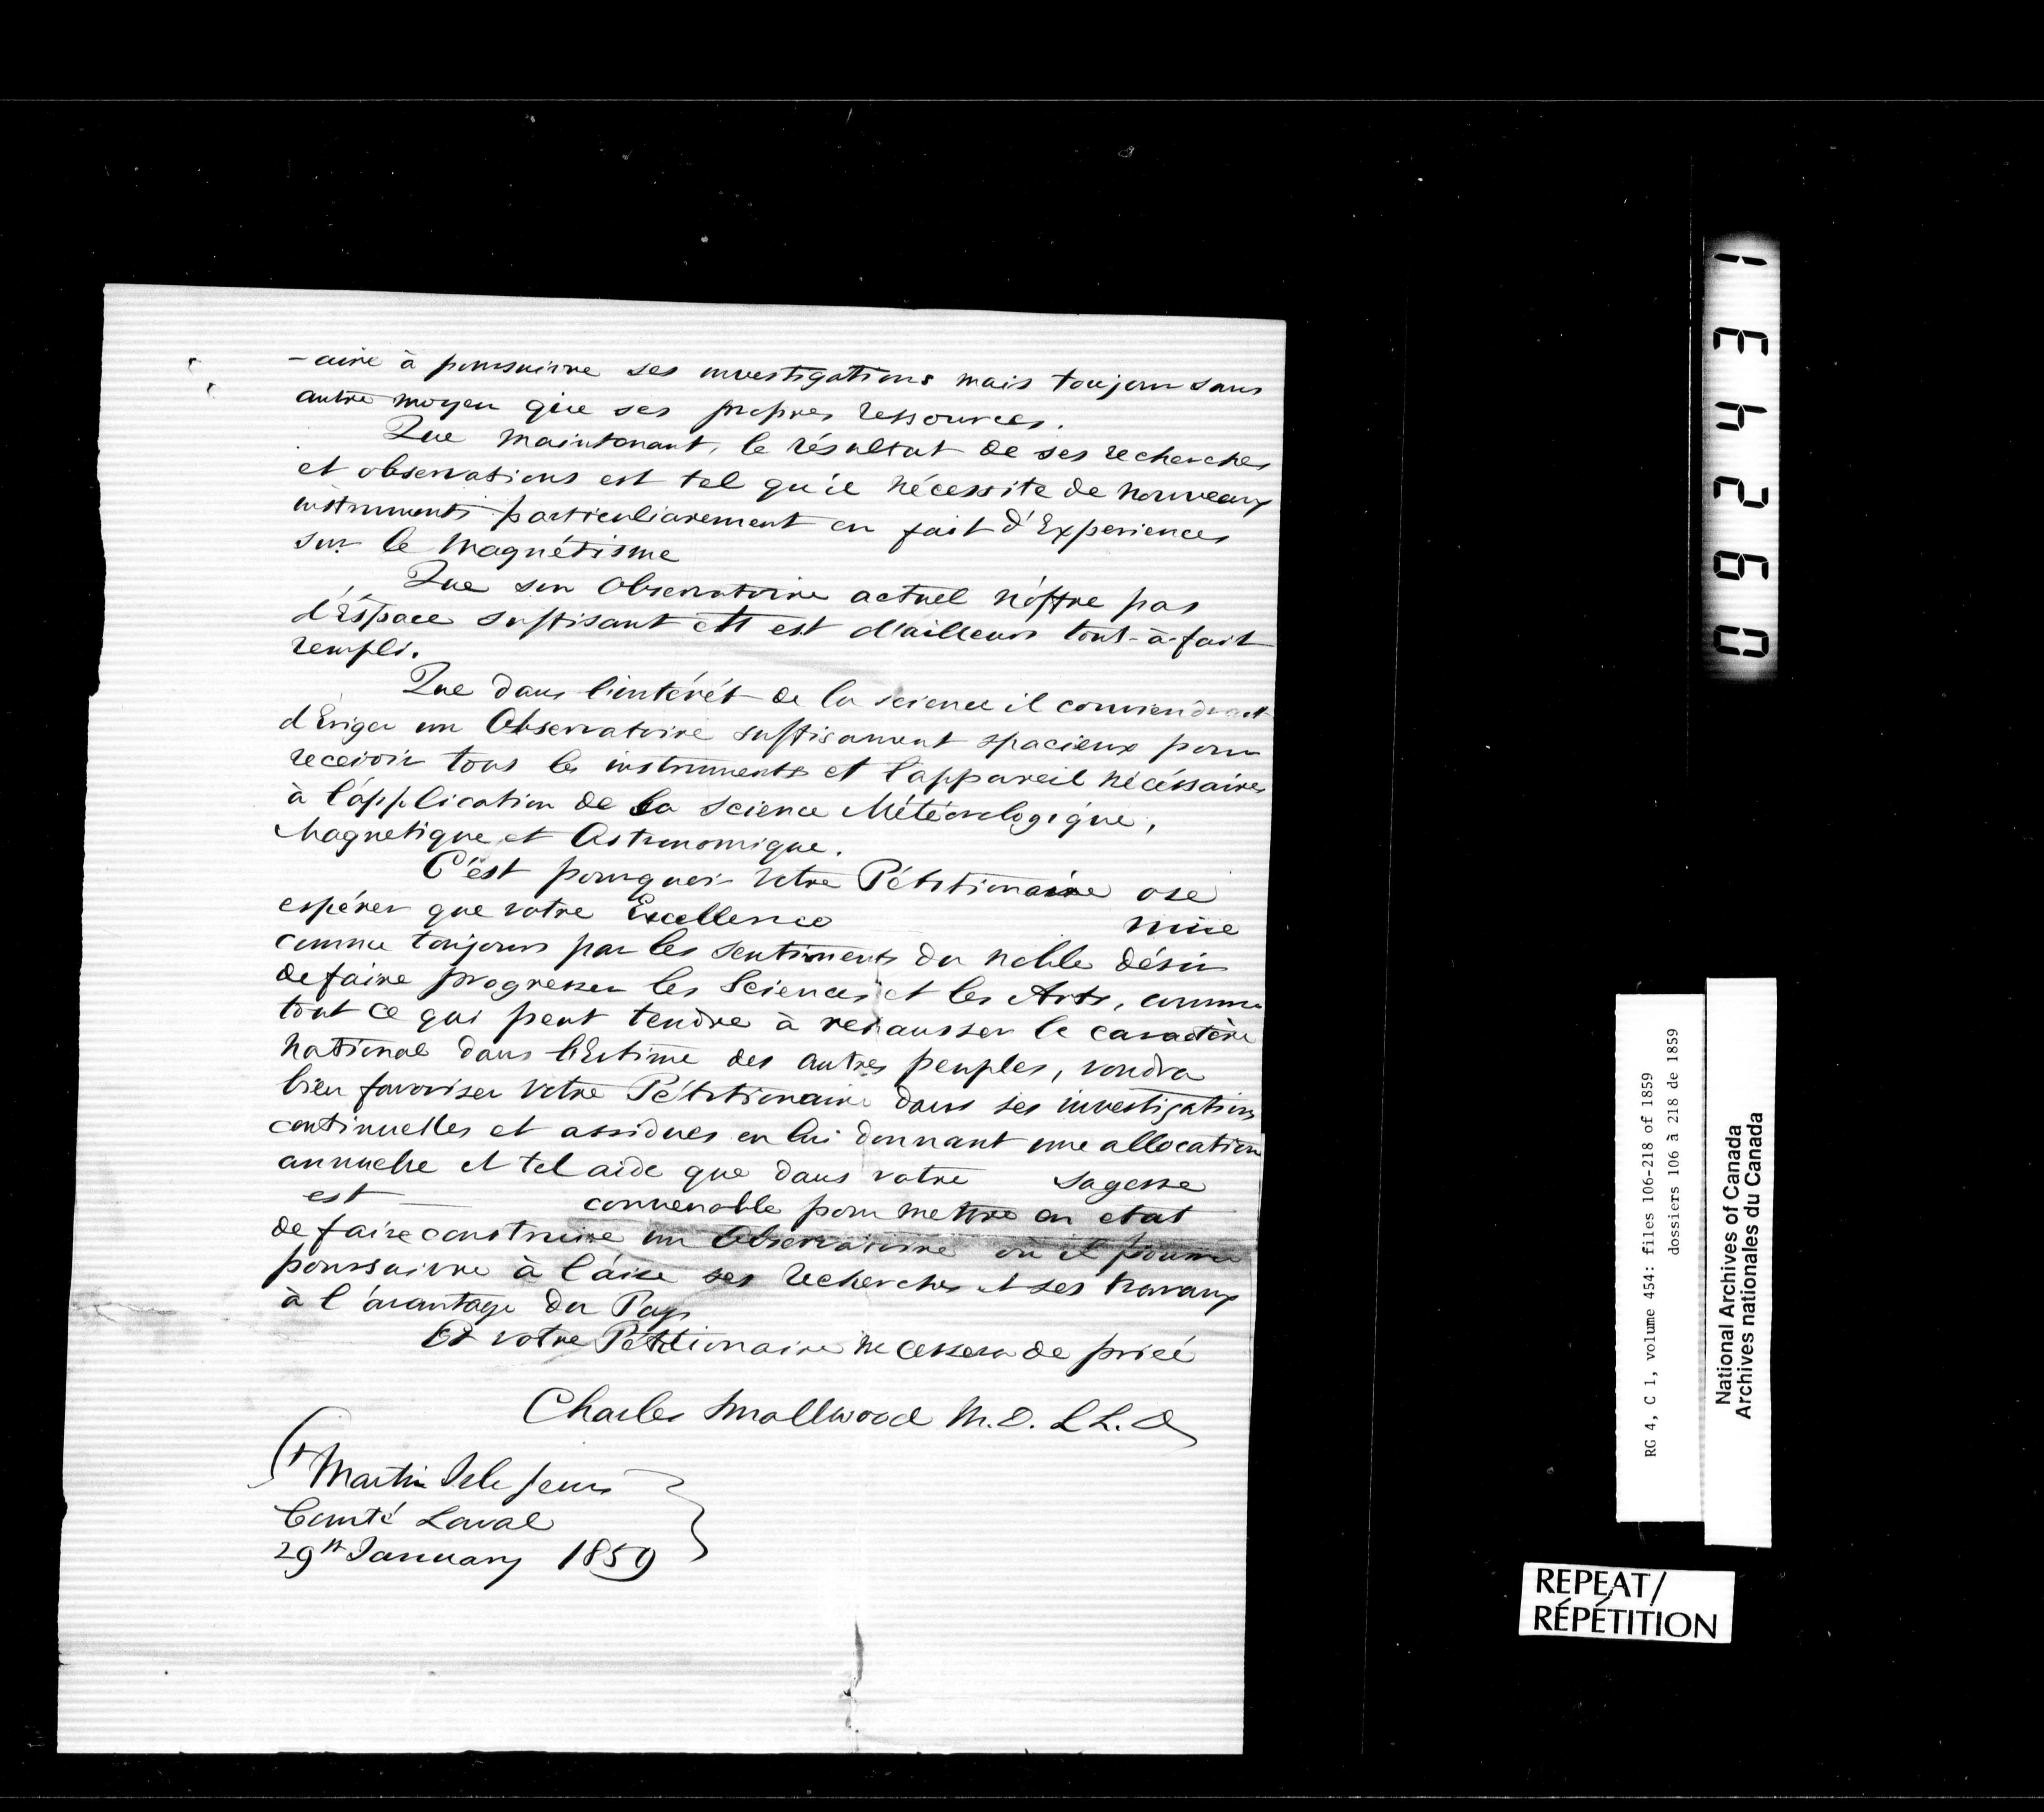 -aire à poursuivre ses investigations mais toujour sans
autre moyen que ses propres ressources.
Que maintenant, le résultat de ses recherches
et observations est tel qu'il nécessite de nouveaux
instruments particuliarement en fait d'Experiences
sur le Magnétisme
Que son Observatoire actuel n'offre pas
d'Espace suffisant et est d'ailleurs tout-à-fait
rempli.
Que dans l'intérêt de la science il conviendrait
d'Eriger un Observatoire suffisament spacieux pour
recevoir tous les instruments et l'appareil nécéssaires
à l'application de la Science Météorologique,
Magnetique et Astronomique.
C'est pourquoi votre Pétitionaire ose
espérer que votre Excellence mue
comme toujours par les sentiments du noble désir
de faire progresser les Sciences et les Arts, comme
tout ce qui peut tendre à rehausser le caractère
National dans l'Estime des autres peuples, voudra
bien favoriser votre Pétitionaire dans ses investigations
continuelles et assidues en lui donnant une allocation
annuelle et tel aide que dans votre sagesse
est convenable pour mettre en etat
de faire construire un Observatoire où il pourra
poursuivre à l'aise ses recherches et ses travaux
à l'avantage du Pays
Et votre Pétitionaire ne cessera de prier
Charles Smallwood M.D. LL.D
St Martin Isle Jesus
Comté Laval
29th January 1859
0 6 2 4 3 1
RG 4, C 1, volume 454: files 106-218 of 1859
dossiers 106 à 218 de 1859
National Archives of Canada
Archives nationales du Canada
REPEAT/
RÉPÉTITION